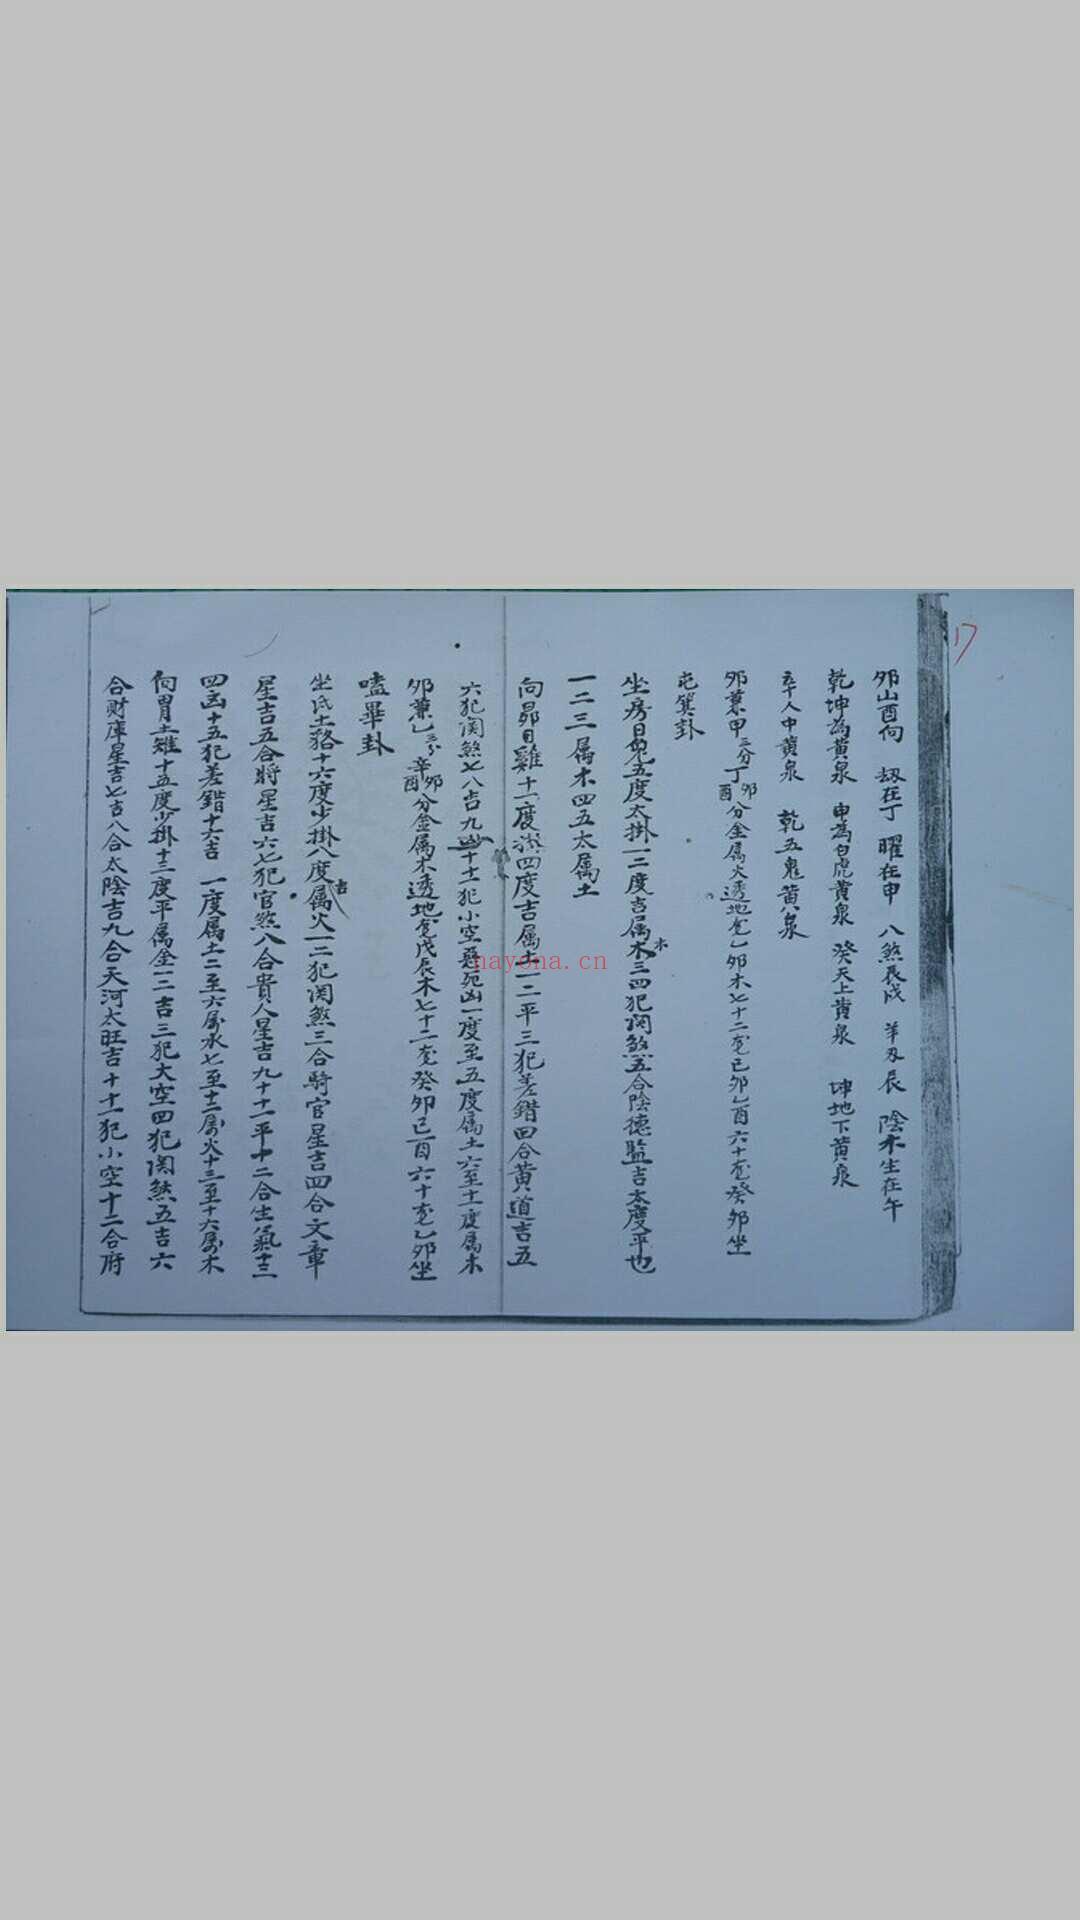 17
卯山酉向 刼在丁 曜在申 八煞辰戌 羊刃辰 陰木生在午
乾坤為黃泉 申為白虎黃泉 癸天上黃泉 坤地下黃泉
人中黃泉 乾五鬼黃泉
卯兼甲三分丁卯酉分金属火透地龙乙卯木七十二龙己卯乙酉六十龙癸卯坐
屯箕卦
坐房日兔五度太掛一二度吉属木三四犯関煞五合陰德監吉太度平也
一二三属木四五太属土
向昴日雞十一度掛四度吉属土一二平三犯差錯四合黃道吉五
六犯関煞七八吉九凶十十一犯小空凶一度至五度属土六至十一度属木
卯兼乙三分辛卯酉分金属木透地龙戊辰木七十二龙癸卯己酉六十龙乙卯坐
嗑畢卦
坐氐土貉十六度少掛八度吉属火一二犯関煞三合騎官星吉四合文章
星吉五合將星吉六七犯官煞八合貴人星吉九十十一平十二合生氣十三
四凶十五犯差錯十六吉 一度属土二至六属水七至十二属火十三至十六属木
向胃土雉十五度少掛十二度平属金一二吉三犯大空四犯関煞五吉六
合財庫星吉七吉八合太陰吉九合天河太旺吉十十一犯小空十二合府
nayona.cn